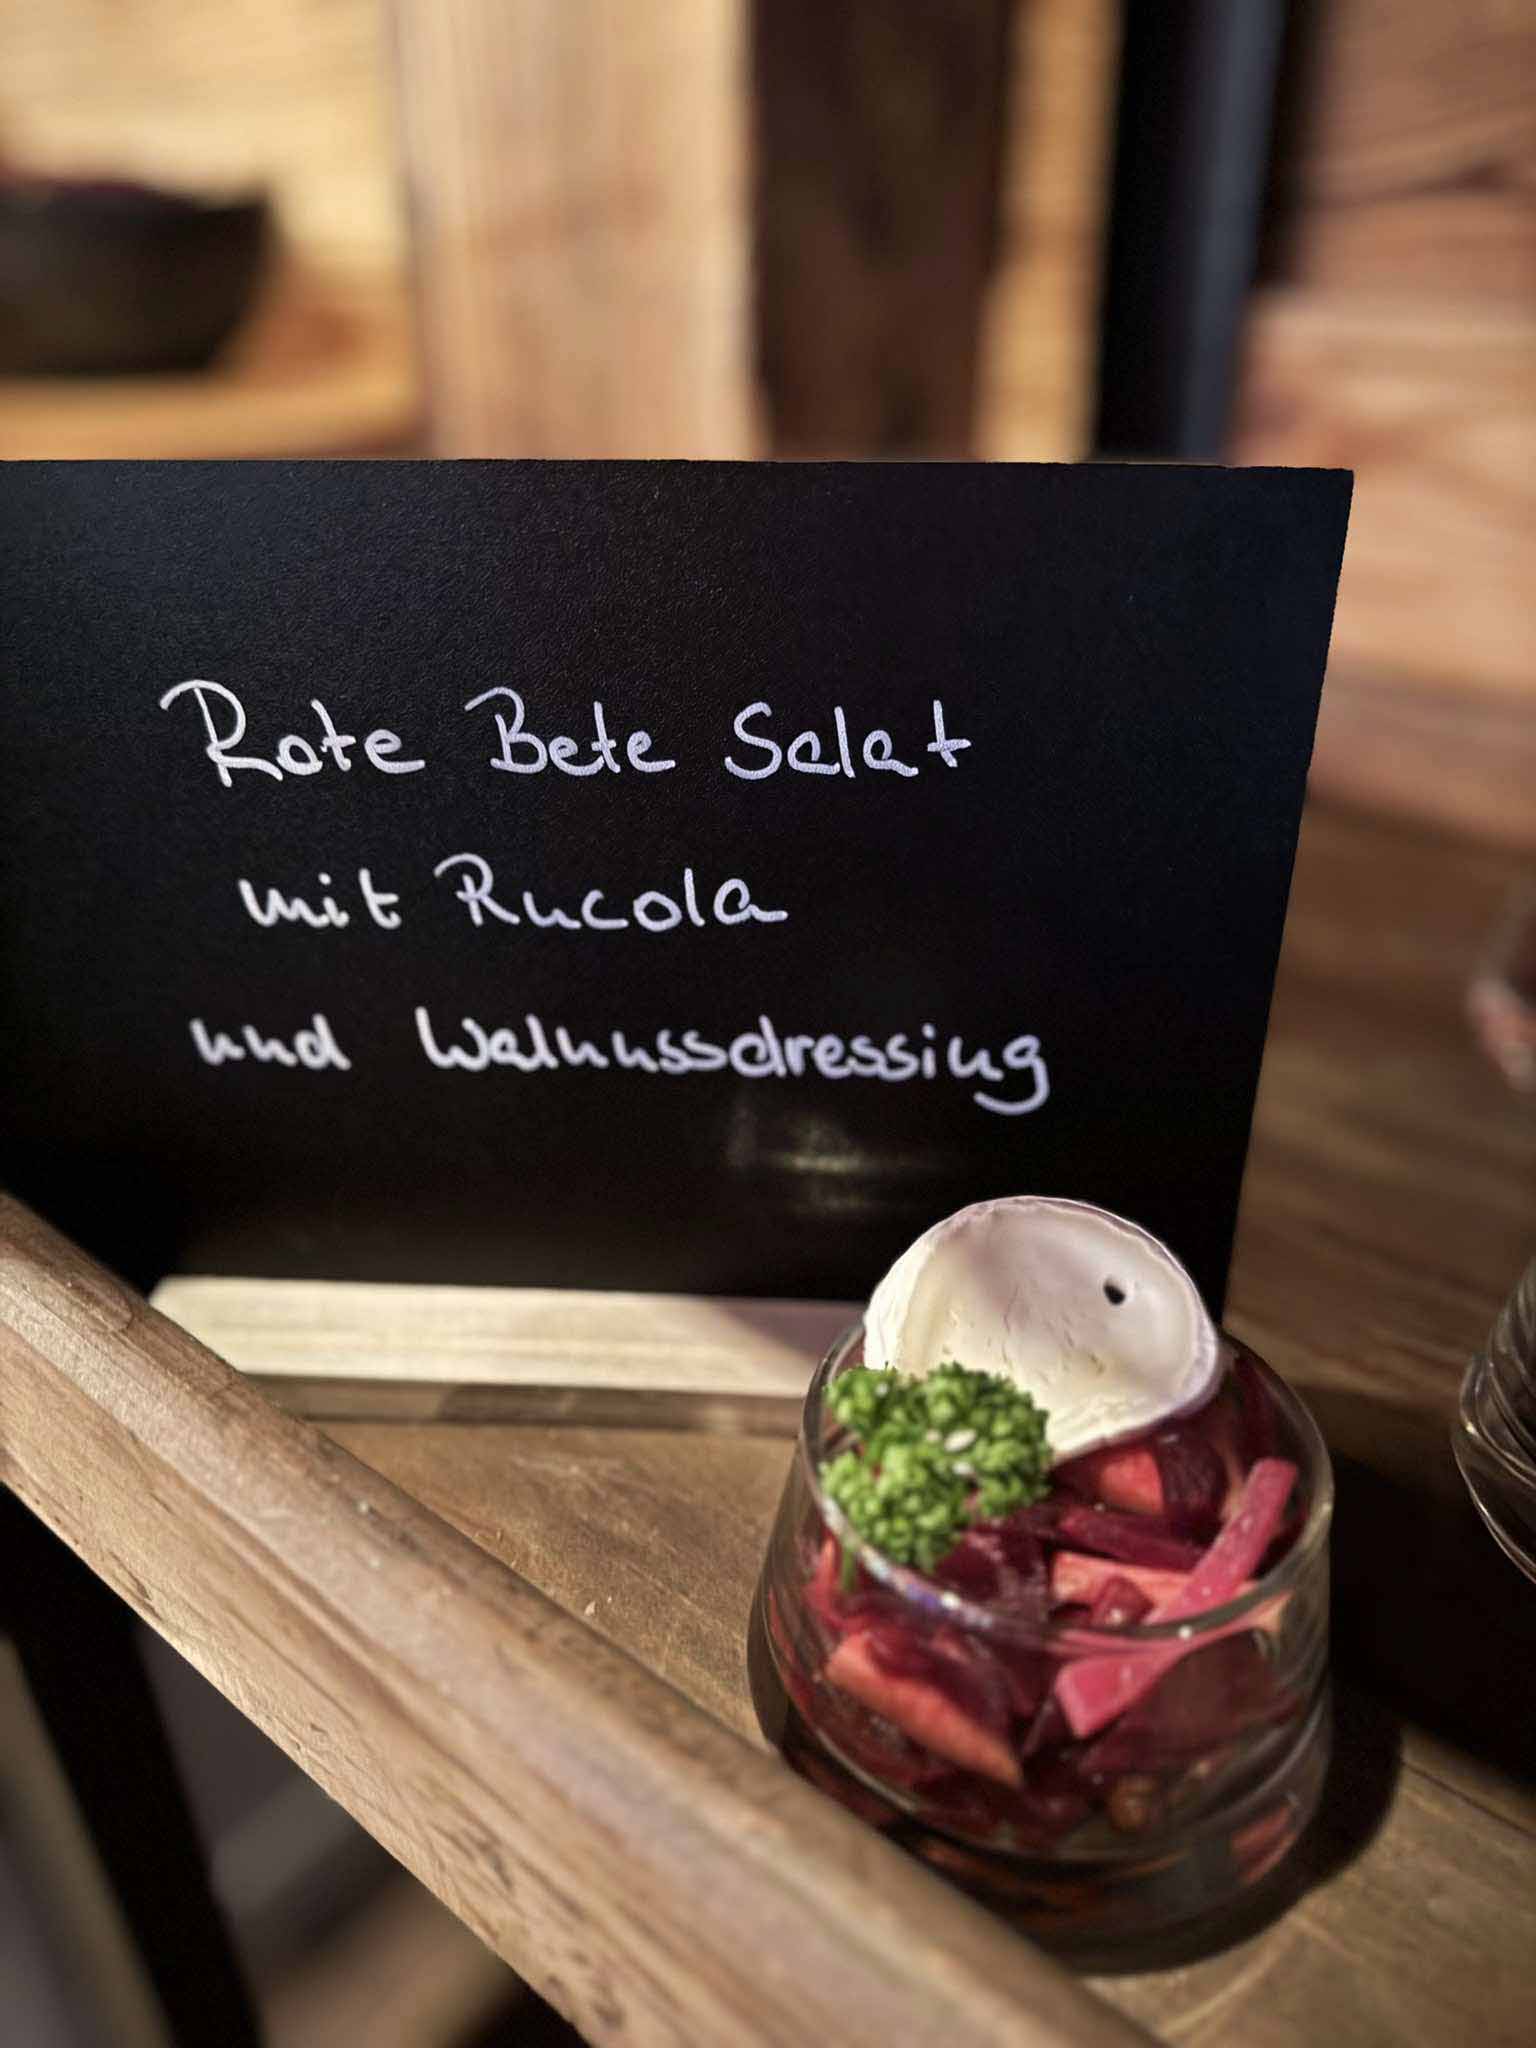 Rote Bete Salat
mit Rucola
und Walnussdressing